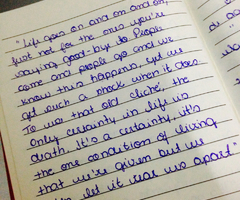 "Life goes on and on and on,
just not for the ones you're
saying good-bye to. People
come and people go and we
know this happens, yet we
get such a shock when it does.
To use that old cliché, the
only certainty in life is
death. It's a certainty, it's
the one condition of living
that we're given but we
let it tear us apart"